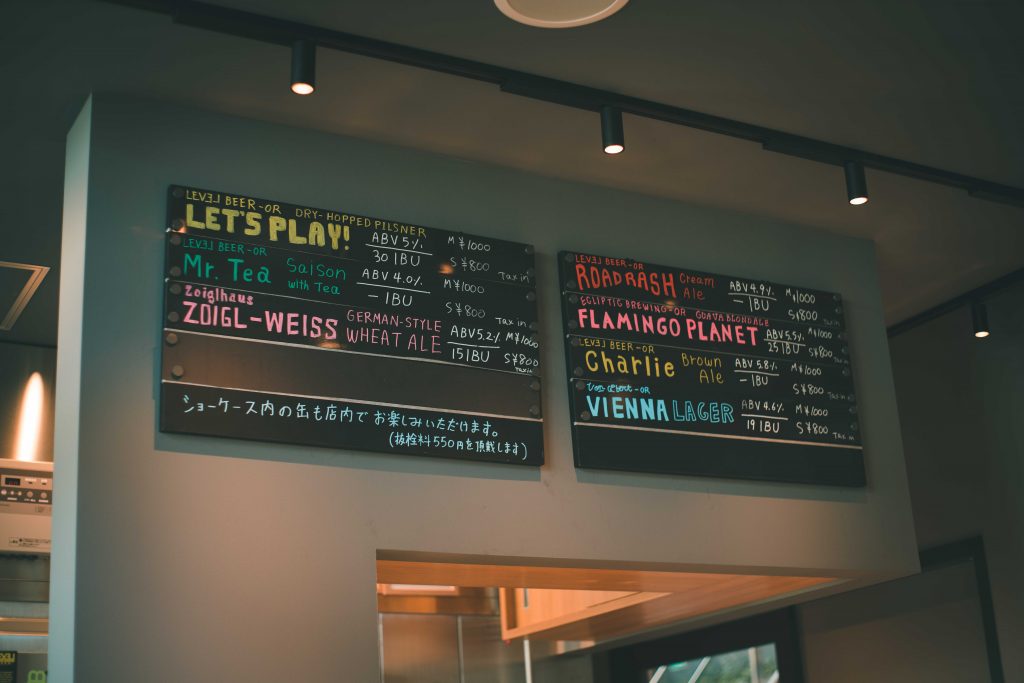 LEVEL BEER-OR DRY-HOPPED PILSNER
LET'S PLAY! ABV 5% M¥1000
30 IBU S¥800 Tax in
LEVEL BEER-OR
Mr. Tea Saison with Tea ABV 4.0% M¥1000
- IBU S¥800 Tax in
Zoiglhaus
ZOIGL-WEISS GERMAN-STYLE WHEAT ALE ABV 5.2% M¥1000
15 IBU S¥800 Tax in
ショーケース内の缶も店内でお楽しみいただけます。
(抜栓料550円を頂戴します)
LEVEL BEER-OR
ROAD RASH Cream Ale ABV 4.9% M¥1000
- IBU S¥800 Tax in
ECLIPTIC BREWING-OR GUAVA BLONDALE
FLAMINGO PLANET ABV 5.5% M¥1000
25 IBU S¥800 Tax in
LEVEL BEER-OR
Charlie Brown Ale ABV 5.8% M¥1000
- IBU S¥800 Tax in
-OR
VIENNA LAGER ABV 4.6% M¥1000
19 IBU S¥800 Tax in